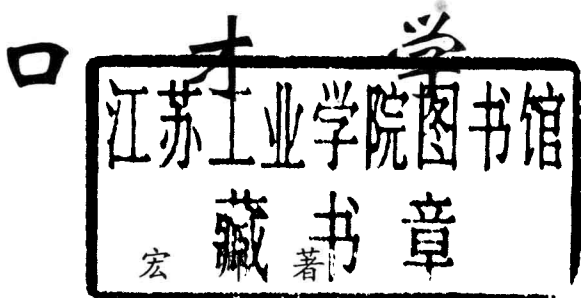 口才学
江苏工业学院图书馆
藏书章
宏 著